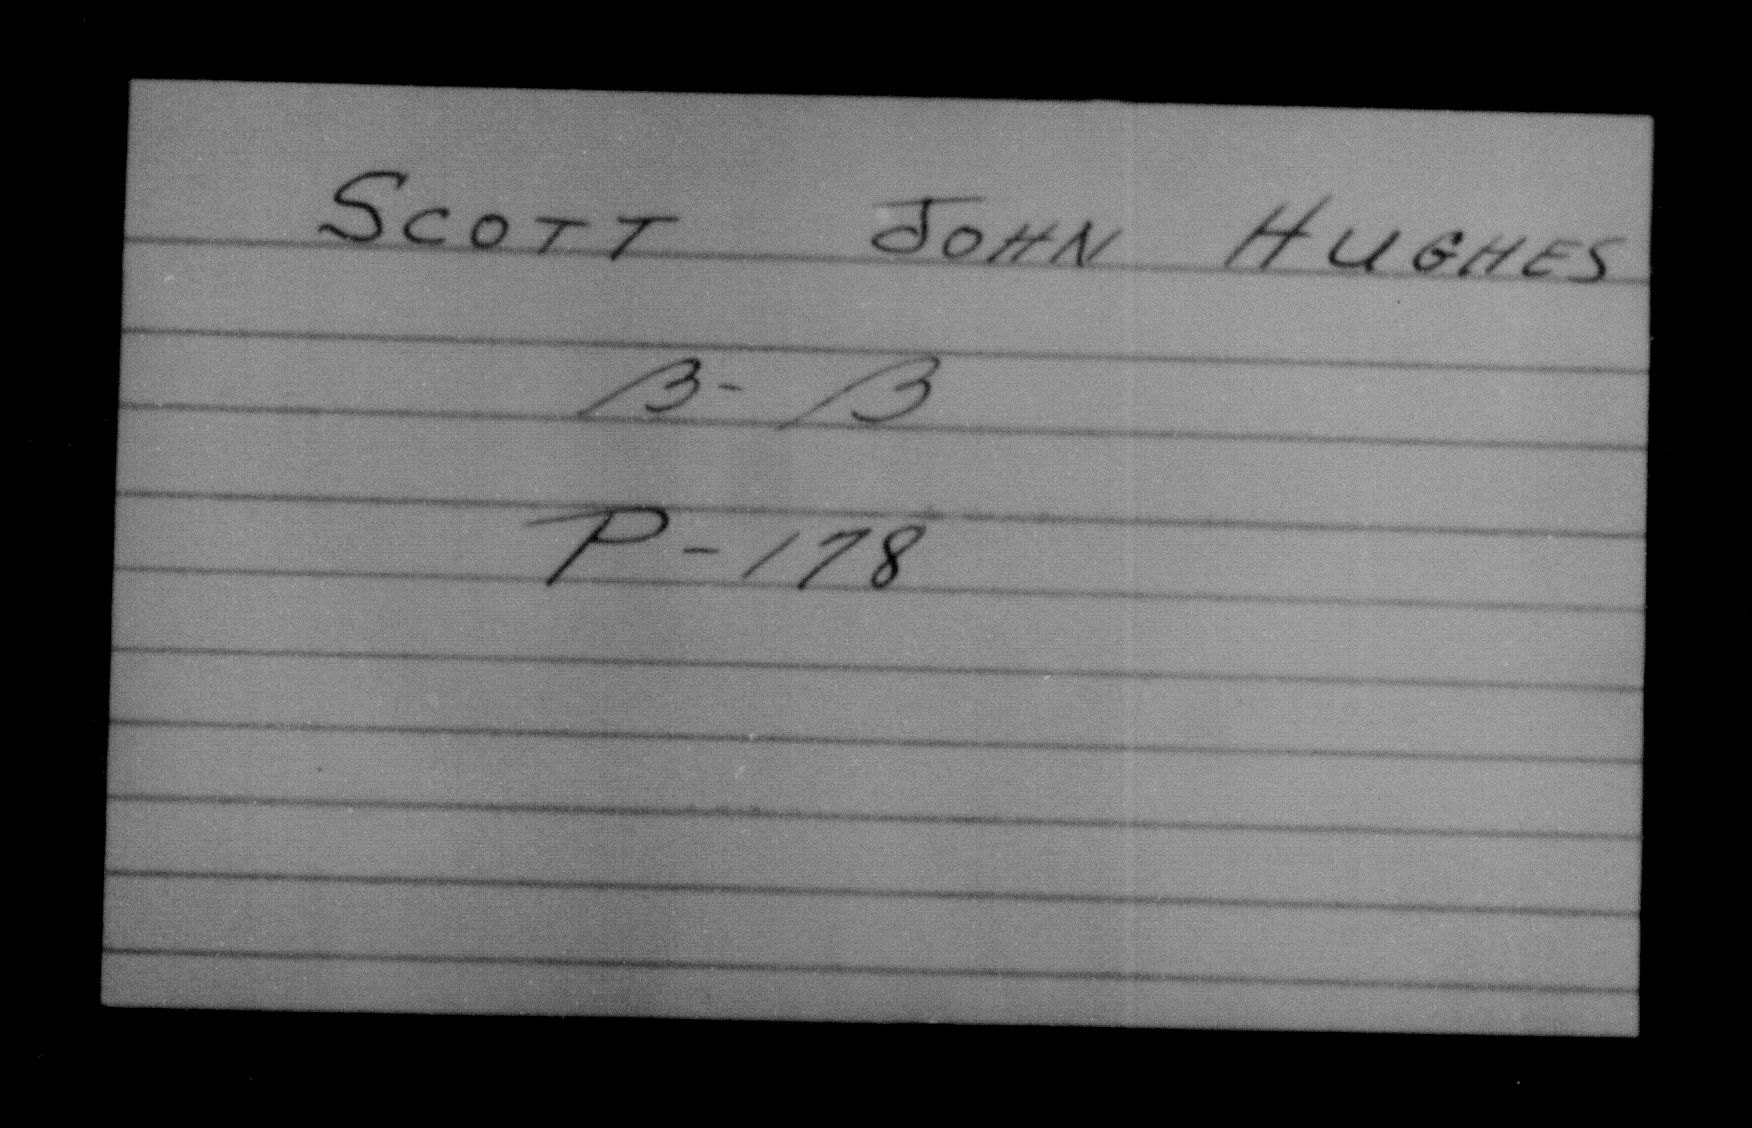 SCOTT JOHN HUGHES
B- B
P-178